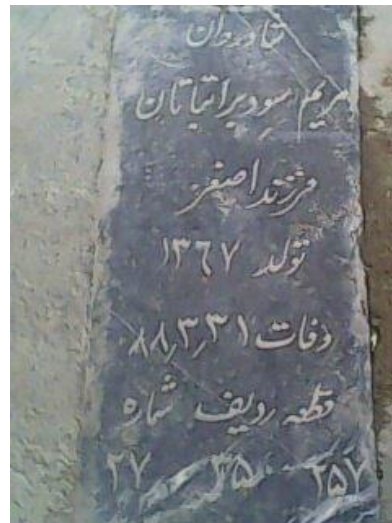 شادروان
مریم سودبر اتباتان
فرزند اصغر
تولد ۱۳۶۷
وفات ۸۸٫۳٫۳۱
قطعه ردیف شماره
۲۵۷ ۳۵ ۲۷